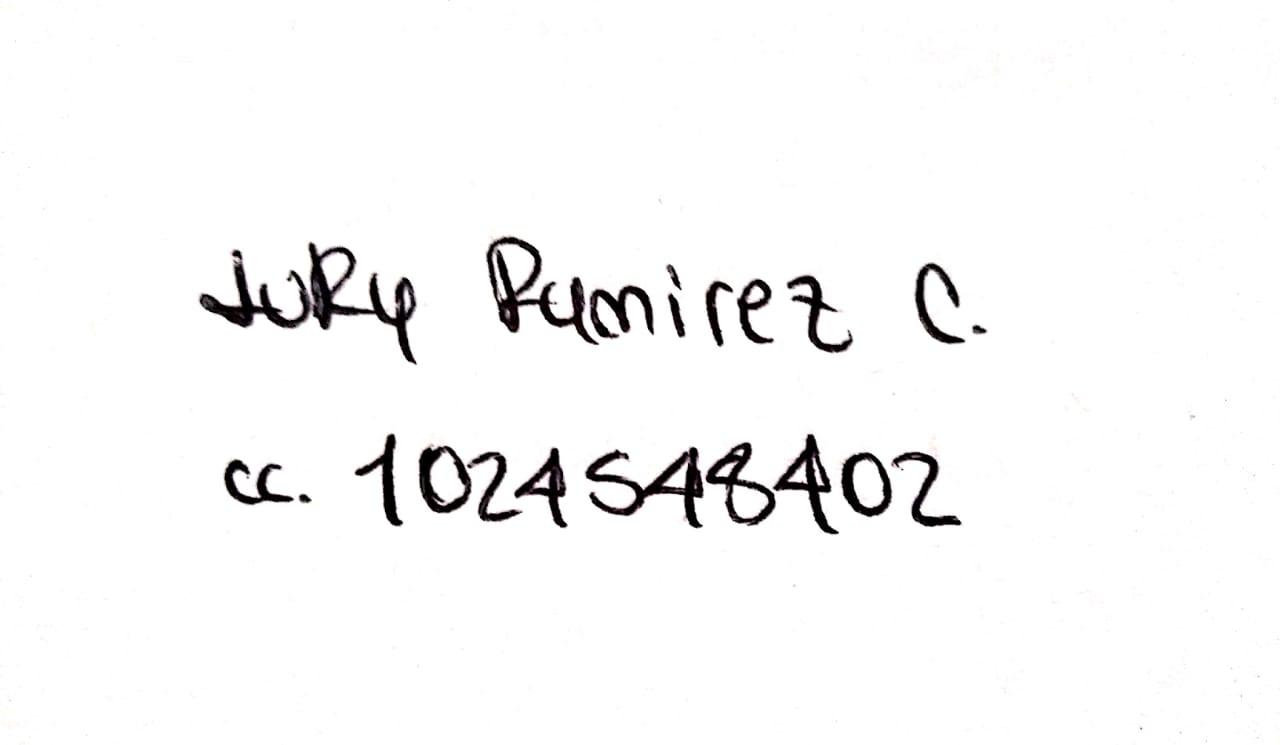 JURY Ramirez C.
cc. 1024548402